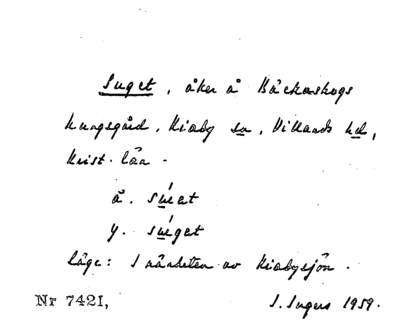 Suget, åker å Bäckaskogs
kungsgård, Kiaby sn, Villands hd,
Krist. län.
å. súat
y. súget
läge: I närheten av Kiabysjön.
Nr 7421, S. Ingers 1959.